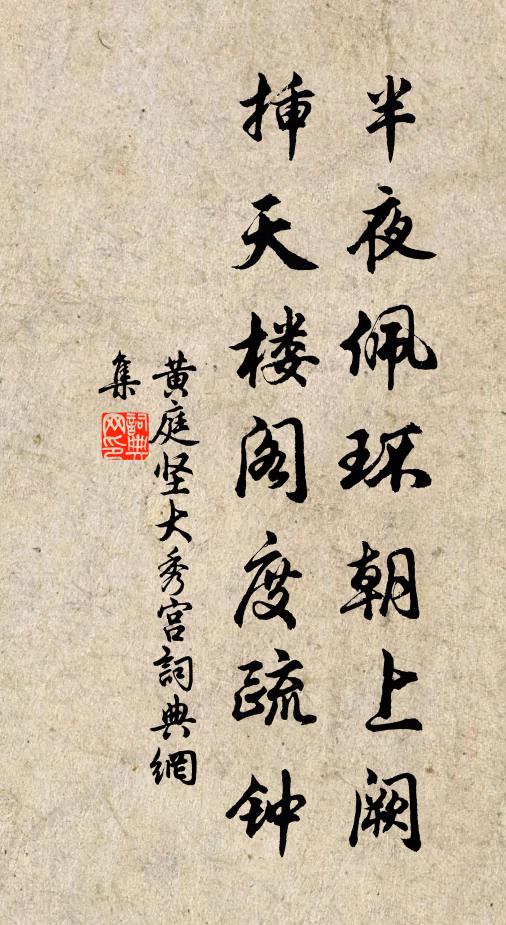 半夜佩环朝上阙
插天楼阁度疏钟
黄庭坚大秀宫詞典網
集
詞典网印